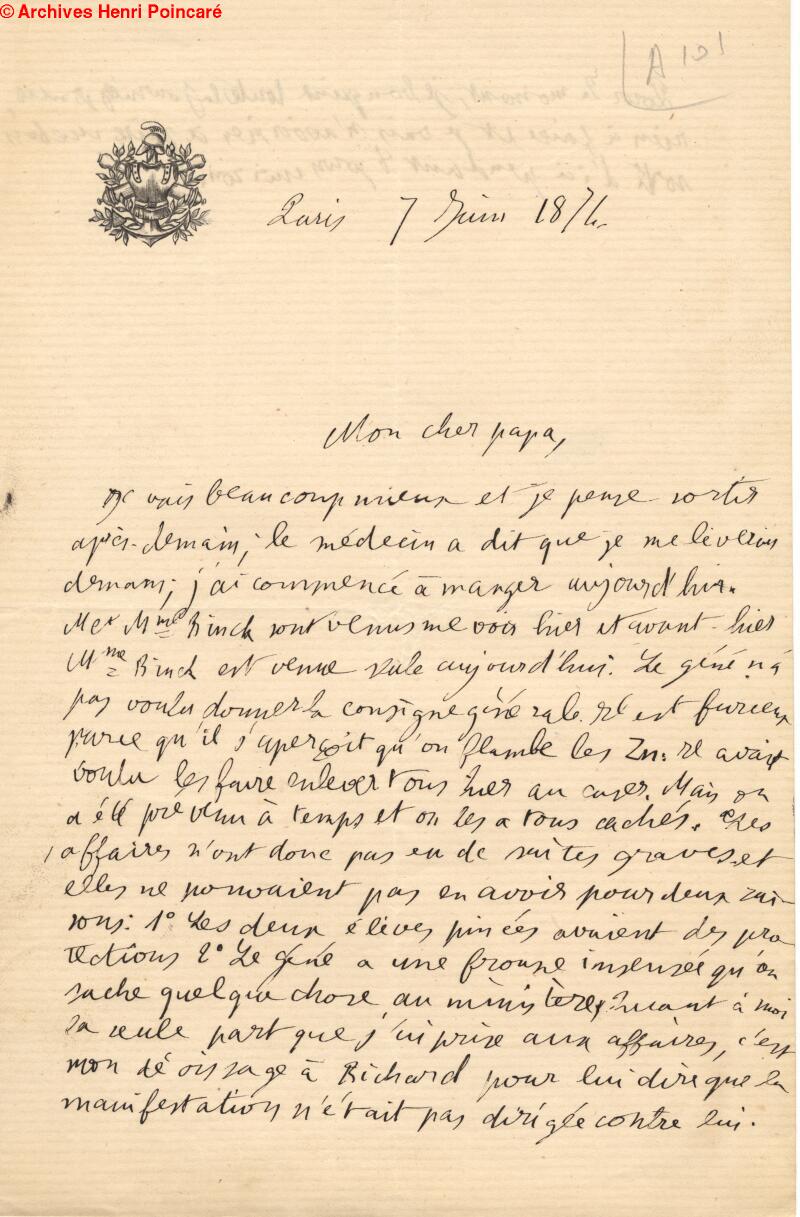 © Archives Henri Poincaré
A 101
Paris 7 Juin 1874
Mon cher papa,
Je vais beaucoup mieux et je pense sortir
après-demain; le médecin a dit que je me lèverais
demain; j'ai commencé à manger aujourd'hui.
M et Mme Rinck sont venus me voir hier et avant-hier
Mme Rinck est venue seule aujourd'hui. Le géné n'a
pas voulu donner la consigne générale. Il est furieux
parce qu'il s'aperçoit qu'on flambe les Zn. Il avait
voulu les faire enlever tous hier au caser. Mais on
a été prévenu à temps et on les a tous cachés. Les
affaires n'ont donc pas eu de suites graves et
elles ne pouvaient pas en avoir pour deux rai-
sons: 1° Les deux élèves pincés avaient des pro
tections 2° Le géné a une frousse insensée qu'on
sache quelque chose au ministère. Quant à moi
la seule part que j'ai prise aux affaires, c'est
mon à Richard pour lui dire que la
manifestation n'était pas dirigée contre lui.